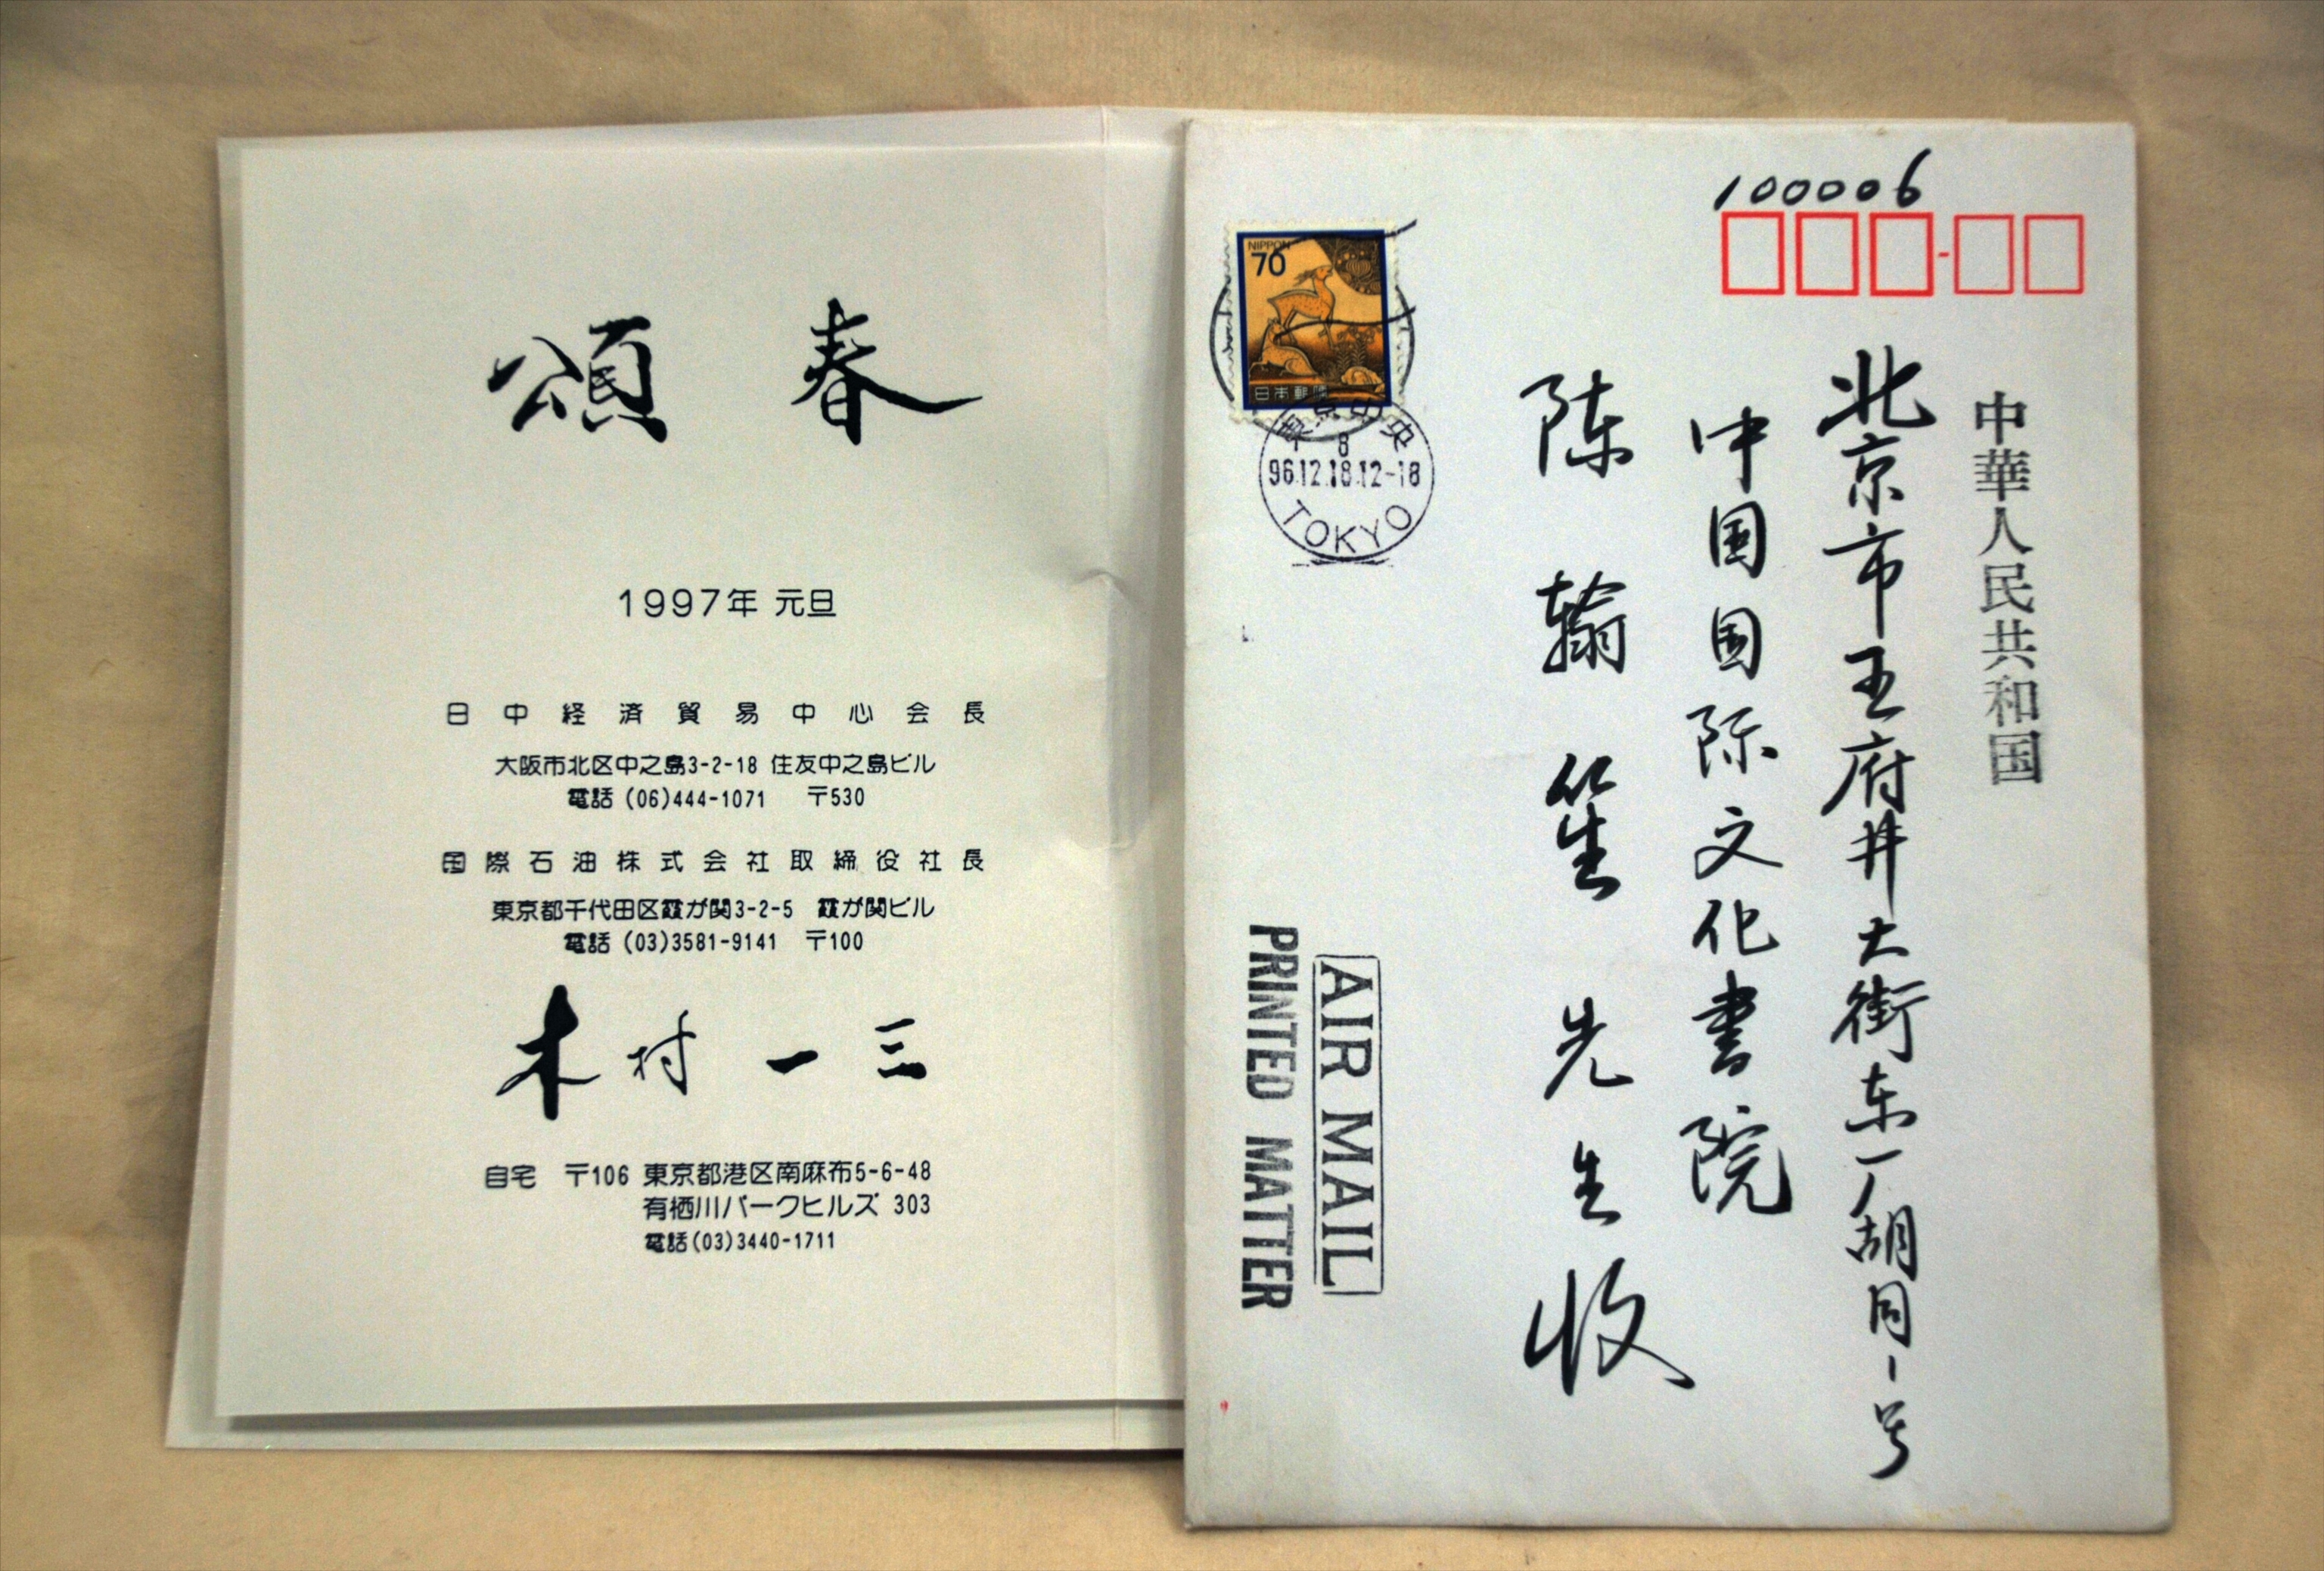 頌春
1997年 元旦
日中経済貿易中心会長
大阪市北区中之島3-2-18 住友中之島ビル
電話 (06)444-1071 〒530
国際石油株式会社取締役社長
東京都千代田区霞が関3-2-5 霞が関ビル
電話 (03)3581-9141 〒100
木村一三
自宅 〒106 東京都港区南麻布5-6-48
有栖川パークヒルズ 303
電話(03)3440-1711
100006
中華人民共和国
北京市王府井大街东厂胡同1号
中国国际文化書院
陈翰笙先生收
NIPPON
70
日本郵便
東京中央
8
96.12.18.12-18
TOKYO
AIR MAIL
PRINTED MATTER